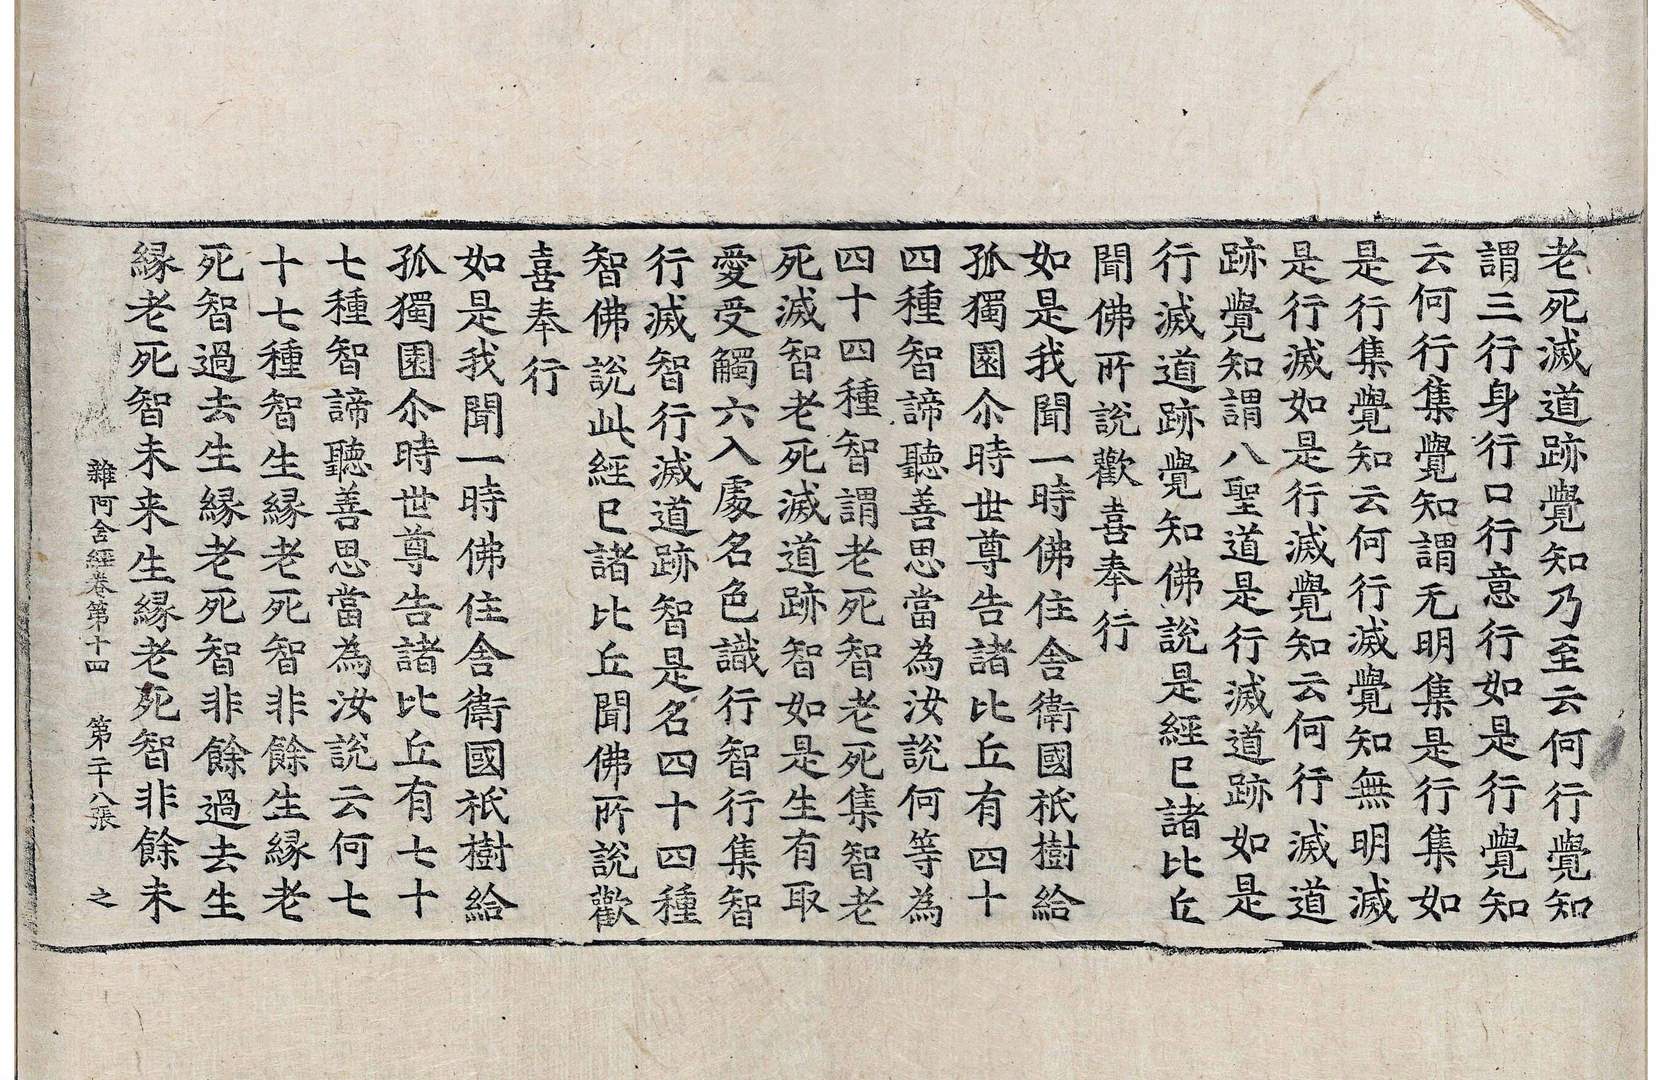 老死滅道跡覺知乃至云何行覺知
謂三行身行口行意行如是行覺知
云何行集覺知謂无明集是行集如
是行集覺知云何行滅覺知無明滅
是行滅如是行滅覺知云何行滅道
跡覺知謂八聖道是行滅道跡如是
行滅道跡覺知佛說是經已諸比丘
聞佛所說歡喜奉行
如是我聞一時佛住舍衛國祇樹給
孤獨園尒時世尊告諸比丘有四十
四種智諦聽善思當為汝說何等為
四十四種智謂老死智老死集智老
死滅智老死滅道跡智如是生有取
愛受觸六入處名色識行智行集智
行滅智行滅道跡智是名四十四種
智佛說此經已諸比丘聞佛所說歡
喜奉行
如是我聞一時佛住舍衛國祇樹給
孤獨園尒時世尊告諸比丘有七十
七種智諦聽善思當為汝說云何七
十七種智生緣老死智非餘生緣老
死智過去生緣老死智非餘過去生
緣老死智未来生緣老死智非餘未
雜阿含經卷第十四 第二十八張 之